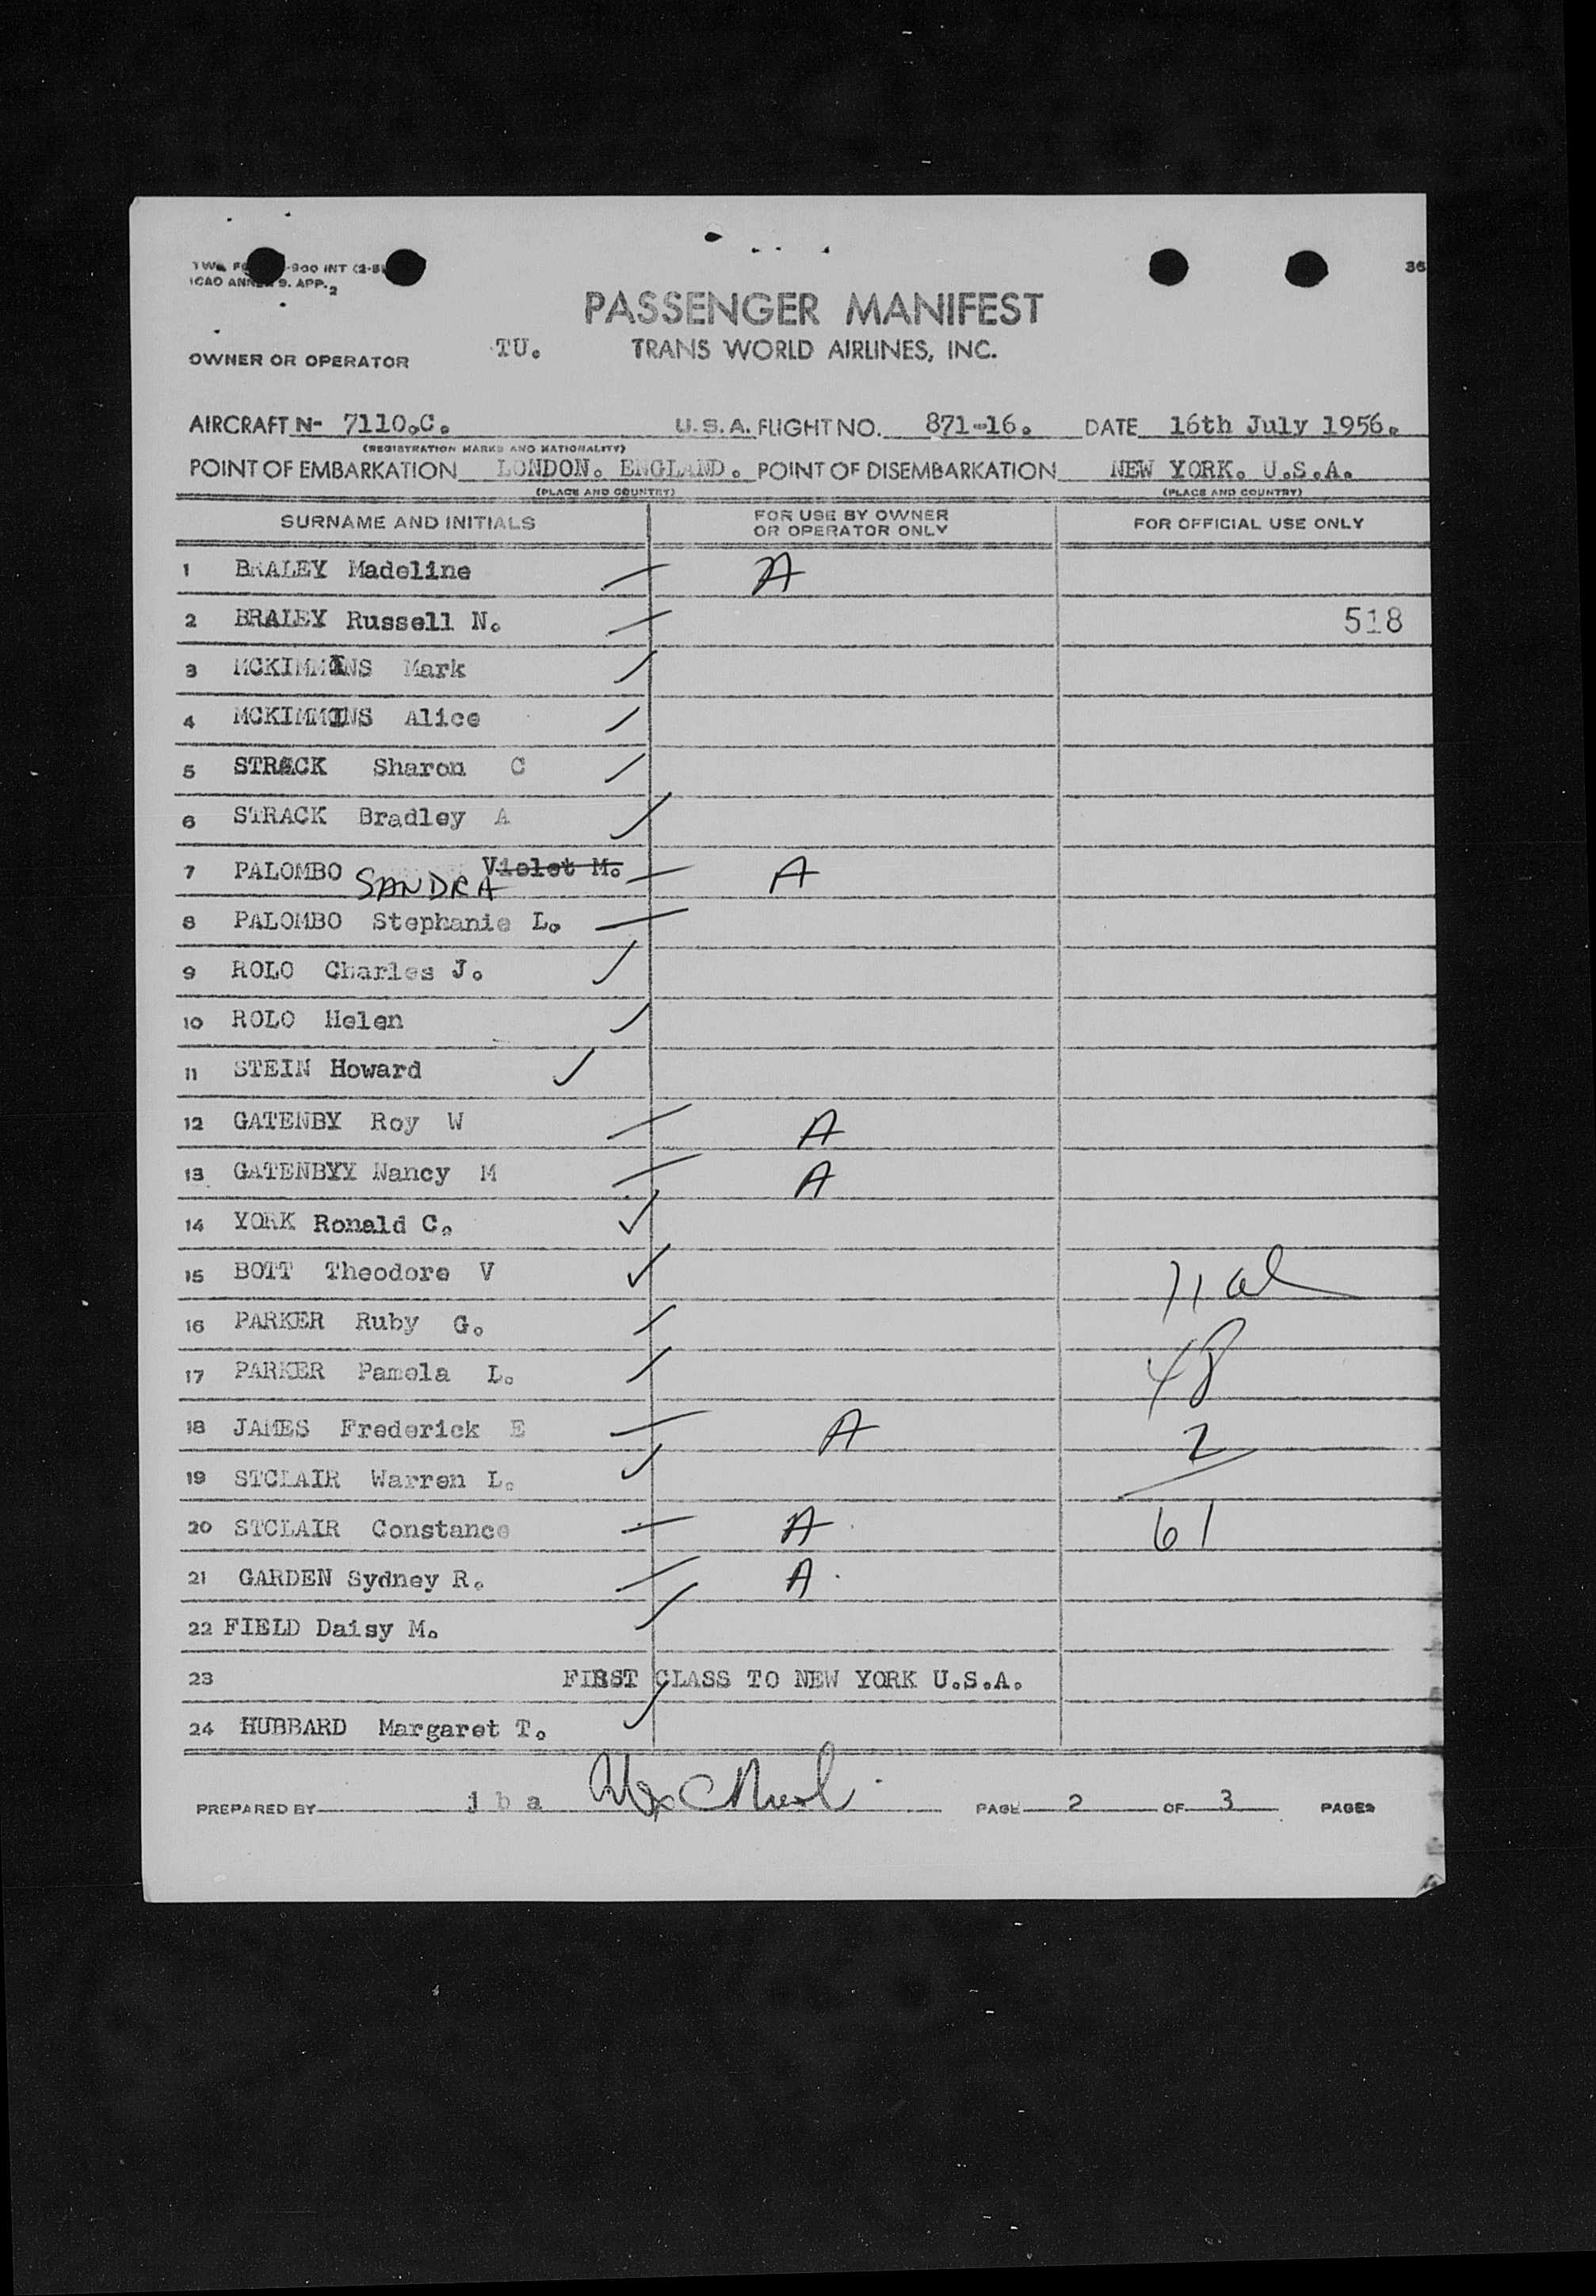 36
ICAO ANNEX 9. APP. 2
PASSENGER MANIFEST
OWNER OR OPERATOR TU. TRANS WORLD AIRLINES, INC.
AIRCRAFT N- 7110.C. U.S.A. FLIGHT NO. 871-16. DATE 16th July 1956.
(REGISTRATION MARKS AND NATIONALITY)
POINT OF EMBARKATION LONDON. ENGLAND. POINT OF DISEMBARKATION NEW YORK. U.S.A.
(PLACE AND COUNTRY) (PLACE AND COUNTRY)
SURNAME AND INITIALS FOR USE BY OWNER OR OPERATOR ONLY FOR OFFICIAL USE ONLY
1 BRALEY Madeline A
2 BRALEY Russell N. 518
3 MCKIMMINS Mark
4 MCKIMMINS Alice
5 STRACK Sharon C
6 STRACK Bradley A
7 PALOMBO SANDRA Violet M. A
8 PALOMBO Stephanie L.
9 ROLO Charles J.
10 ROLO Helen
11 STEIN Howard
12 GATENBY Roy W A
13 GATENBYY Nancy M A
14 YORK Ronald C.
15 BOTT Theodore V 11
16 PARKER Ruby G.
17 PARKER Pamela L. 48
18 JAMES Frederick E A 2
19 STCLAIR Warren L.
20 STCLAIR Constance A 61
21 GARDEN Sydney R. A
22 FIELD Daisy M.
23 FIRST CLASS TO NEW YORK U.S.A.
24 HUBBARD Margaret T.
PREPARED BY j b a PAGE 2 OF 3 PAGES